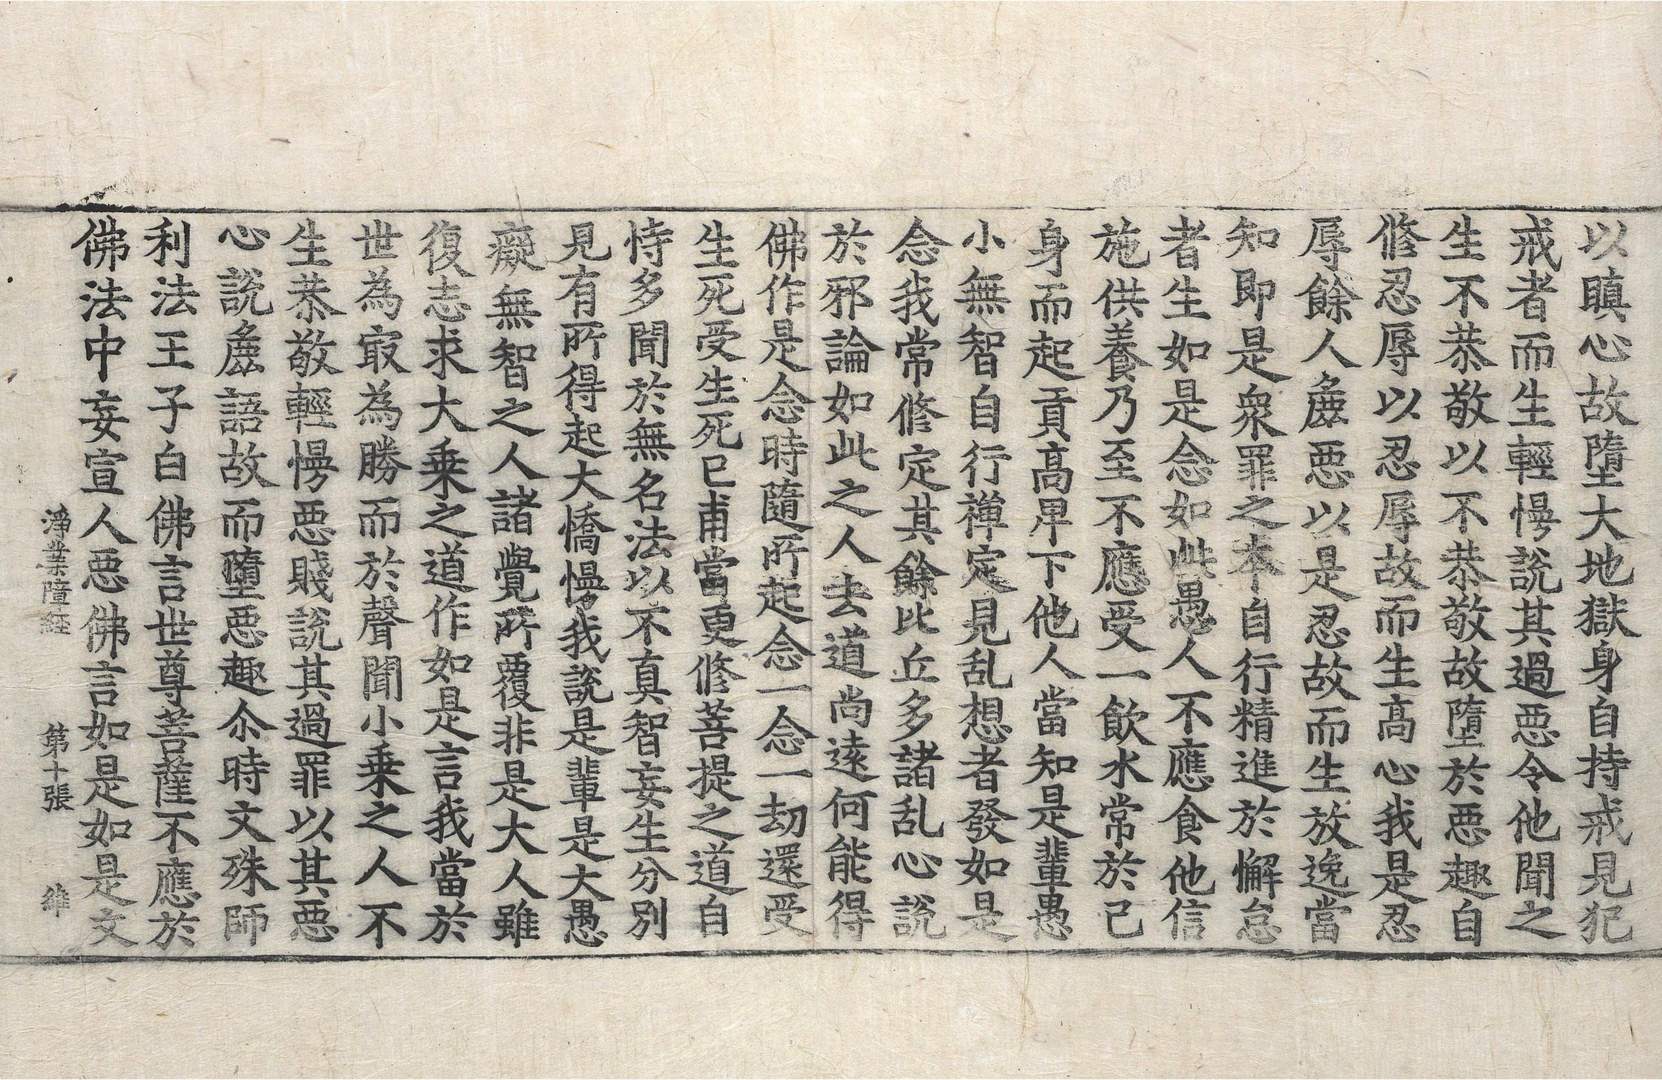 以瞋心故墮大地獄身自持戒見犯
戒者而生輕慢說其過惡令他聞之
生不恭敬以不恭敬故墮於惡趣自
修忍辱以忍辱故而生高心我是忍
辱餘人麁惡以是忍故而生放逸當
知即是衆罪之本自行精進於懈怠
者生如是念如此愚人不應食他信
施供養乃至不應受一飲水常於己
身而起貢高卑下他人當知是輩愚
小無智自行禪定見乱想者發如是
念我常修定其餘比丘多諸乱心說
於邪論如此之人去道尚遠何能得
佛作是念時隨所起念一念一劫還受
生死受生死已甫當更修菩提之道自
恃多聞於無名法以不真智妄生分別
見有所得起大憍慢我說是輩是大愚
癡無智之人諸覺所覆非是大人雖
復志求大乘之道作如是言我當於
世為㝡為勝而於聲聞小乘之人不
生恭敬輕慢惡賤說其過罪以其惡
心說麁語故而墮惡趣尒時文殊師
利法王子白佛言世尊菩薩不應於
佛法中妄宣人惡佛言如是如是文
淨業障經 第十張 維